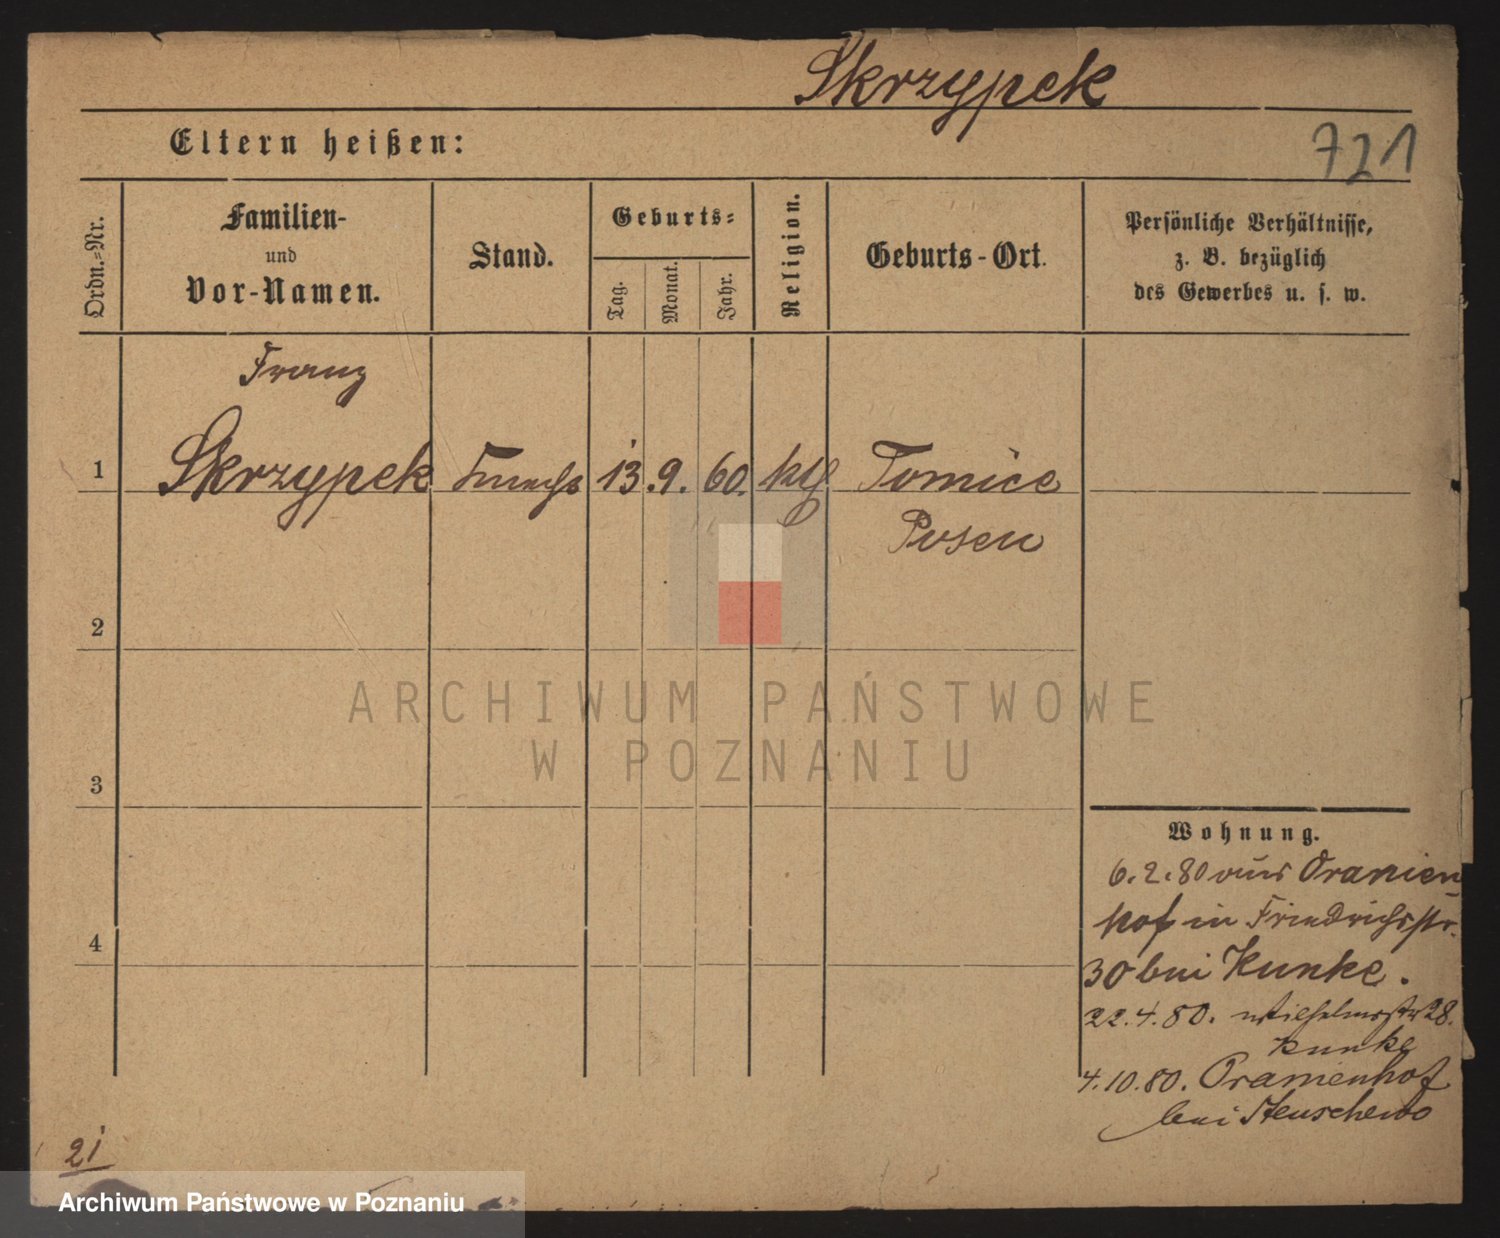 Skrzypek
Eltern heißen:
721
Ordn.=Nr.
Familien-
und
Vor-Namen.
Stand.
Geburts=
Tag.
Monat.
Jahr.
Religion.
Geburts-Ort.
Persönliche Verhältnisse,
z. B. bezüglich
des Gewerbes u. s. w.
Franz
1 Skrzypek Knecht 13. 9. 60. kth Tomice
Posen
2
ARCHIWUM PAŃSTWOWE
W POZNANIU
3
Wohnung.
6.2.80 aus Oranien
hof in Friedrichsstr.
30 bei Kunke.
4
22.4.80. Wilhelmsstr 28.
Kunke
4.10.80. Oranienhof
bei
21
Archiwum Państwowe w Poznaniu